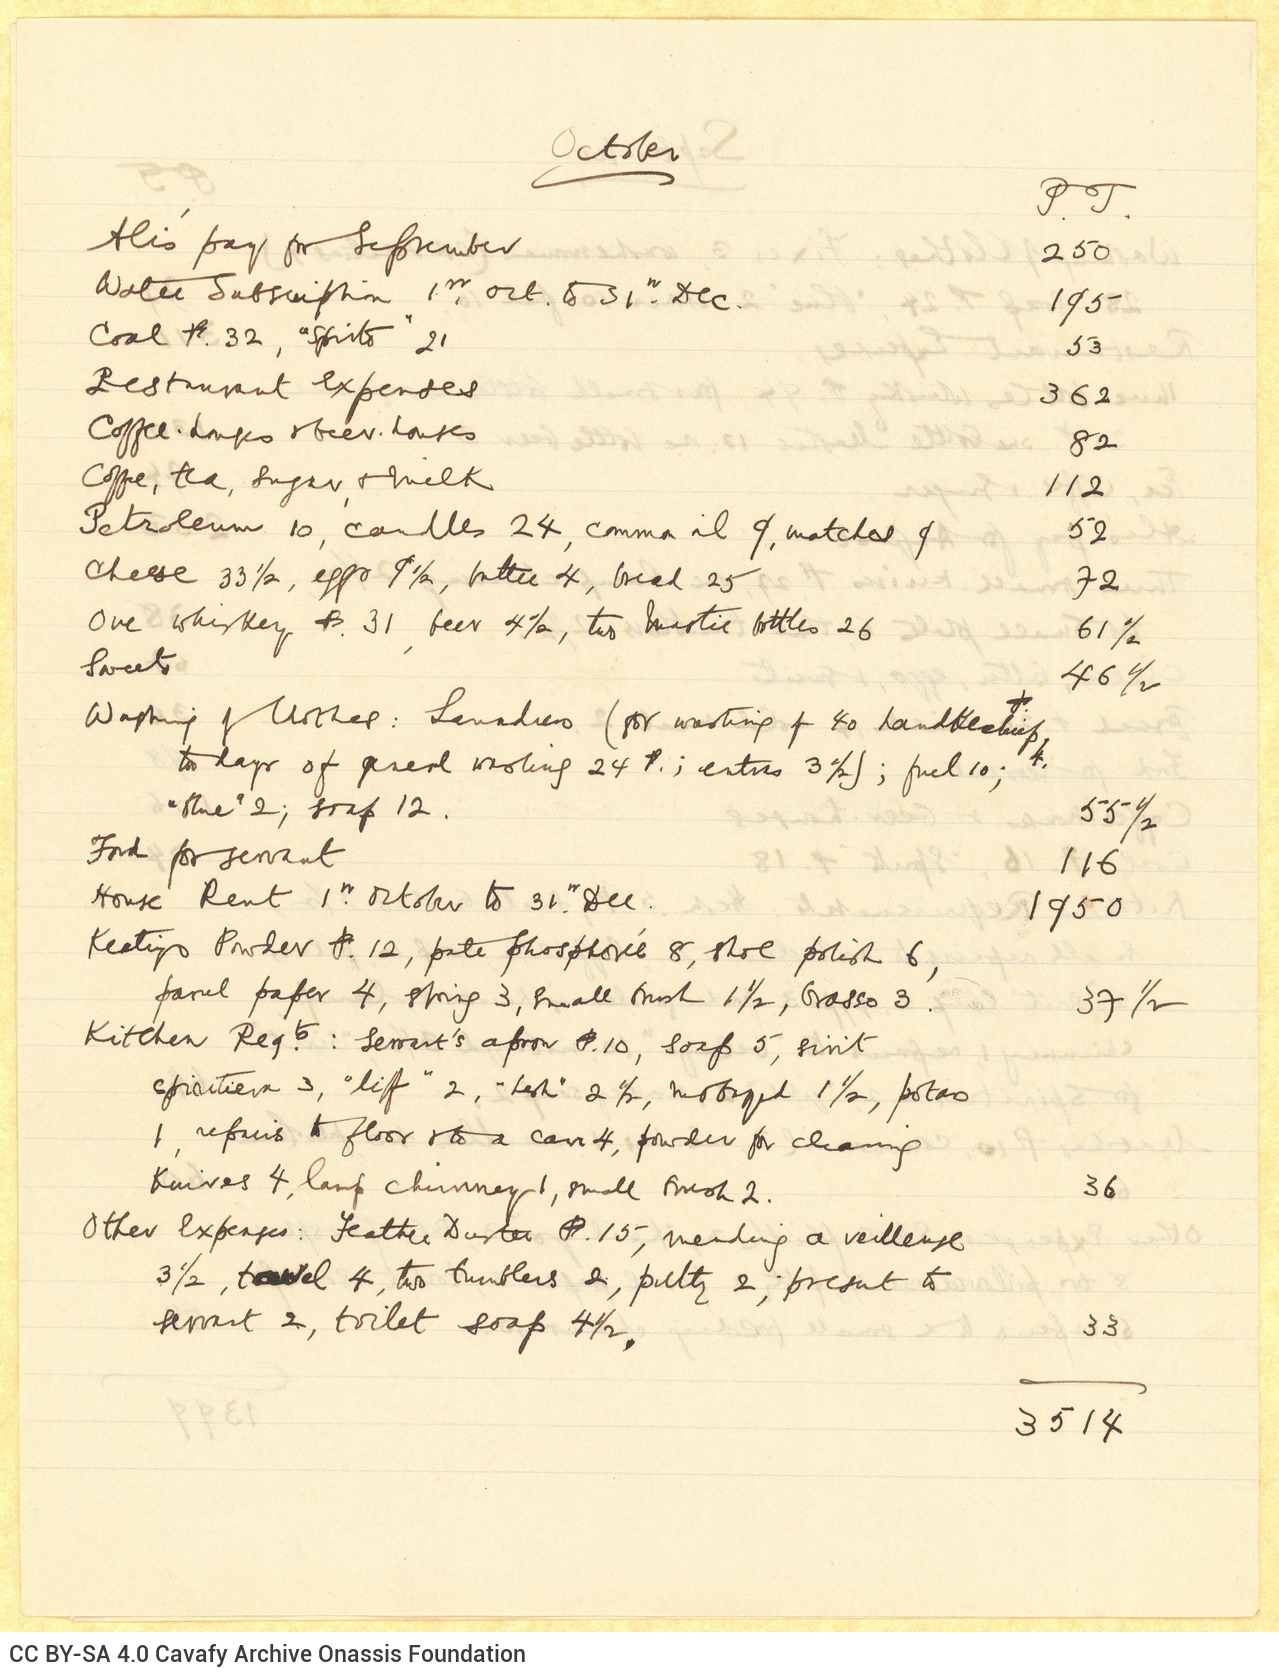 October
P.T.
Ali's pay for September 250
Water Subscription 1st Oct. to 31st Dec. 195
Coal P. 32, "Spirito" 21 53
Restaurant Expenses 362
Coffee-houses & beer-houses 82
Coffee, tea, sugar, & milk 112
Petroleum 10, candles 24, common oil 9, matches 9 52
Cheese 33½, eggs 9½, butter 4, bread 25 72
One whiskey P. 31, beer 4½, two mastic bottles 26 61½
Sweets 46½
Washing of Clothes: Laundress (for washing of 40 handkerchiefs,
two days of general washing 24 P.; extras 3½); fuel 10;
"blue" 2; soap 12. 55½
Food for servant 116
House Rent 1st October to 31st Dec. 1950
Keatings Powder P. 12, pate phosphorée 8, shoe polish 6,
panel paper 4, string 3, small brush 1½, brasso 3. 37½
Kitchen Reqts: Servant's apron P. 10, soap 5,
3, "liff" 2, 2½, 1½, potas
1, repairs to floor & to a can 4, powder for cleaning
knives 4, lamp chimney 1, small brush 2. 36
Other Expenses: Feather Duster P. 15, mending a veilleuse
3½, towel 4, two tumblers 2, putty 2, present to
servant 2, toilet soap 4½. 33
3514
CC BY-SA 4.0 Cavafy Archive Onassis Foundation